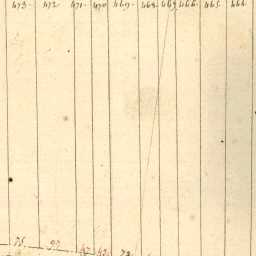 473. 472. 471. 470 469. 468. 467 466. 465. 464.
75. 92.